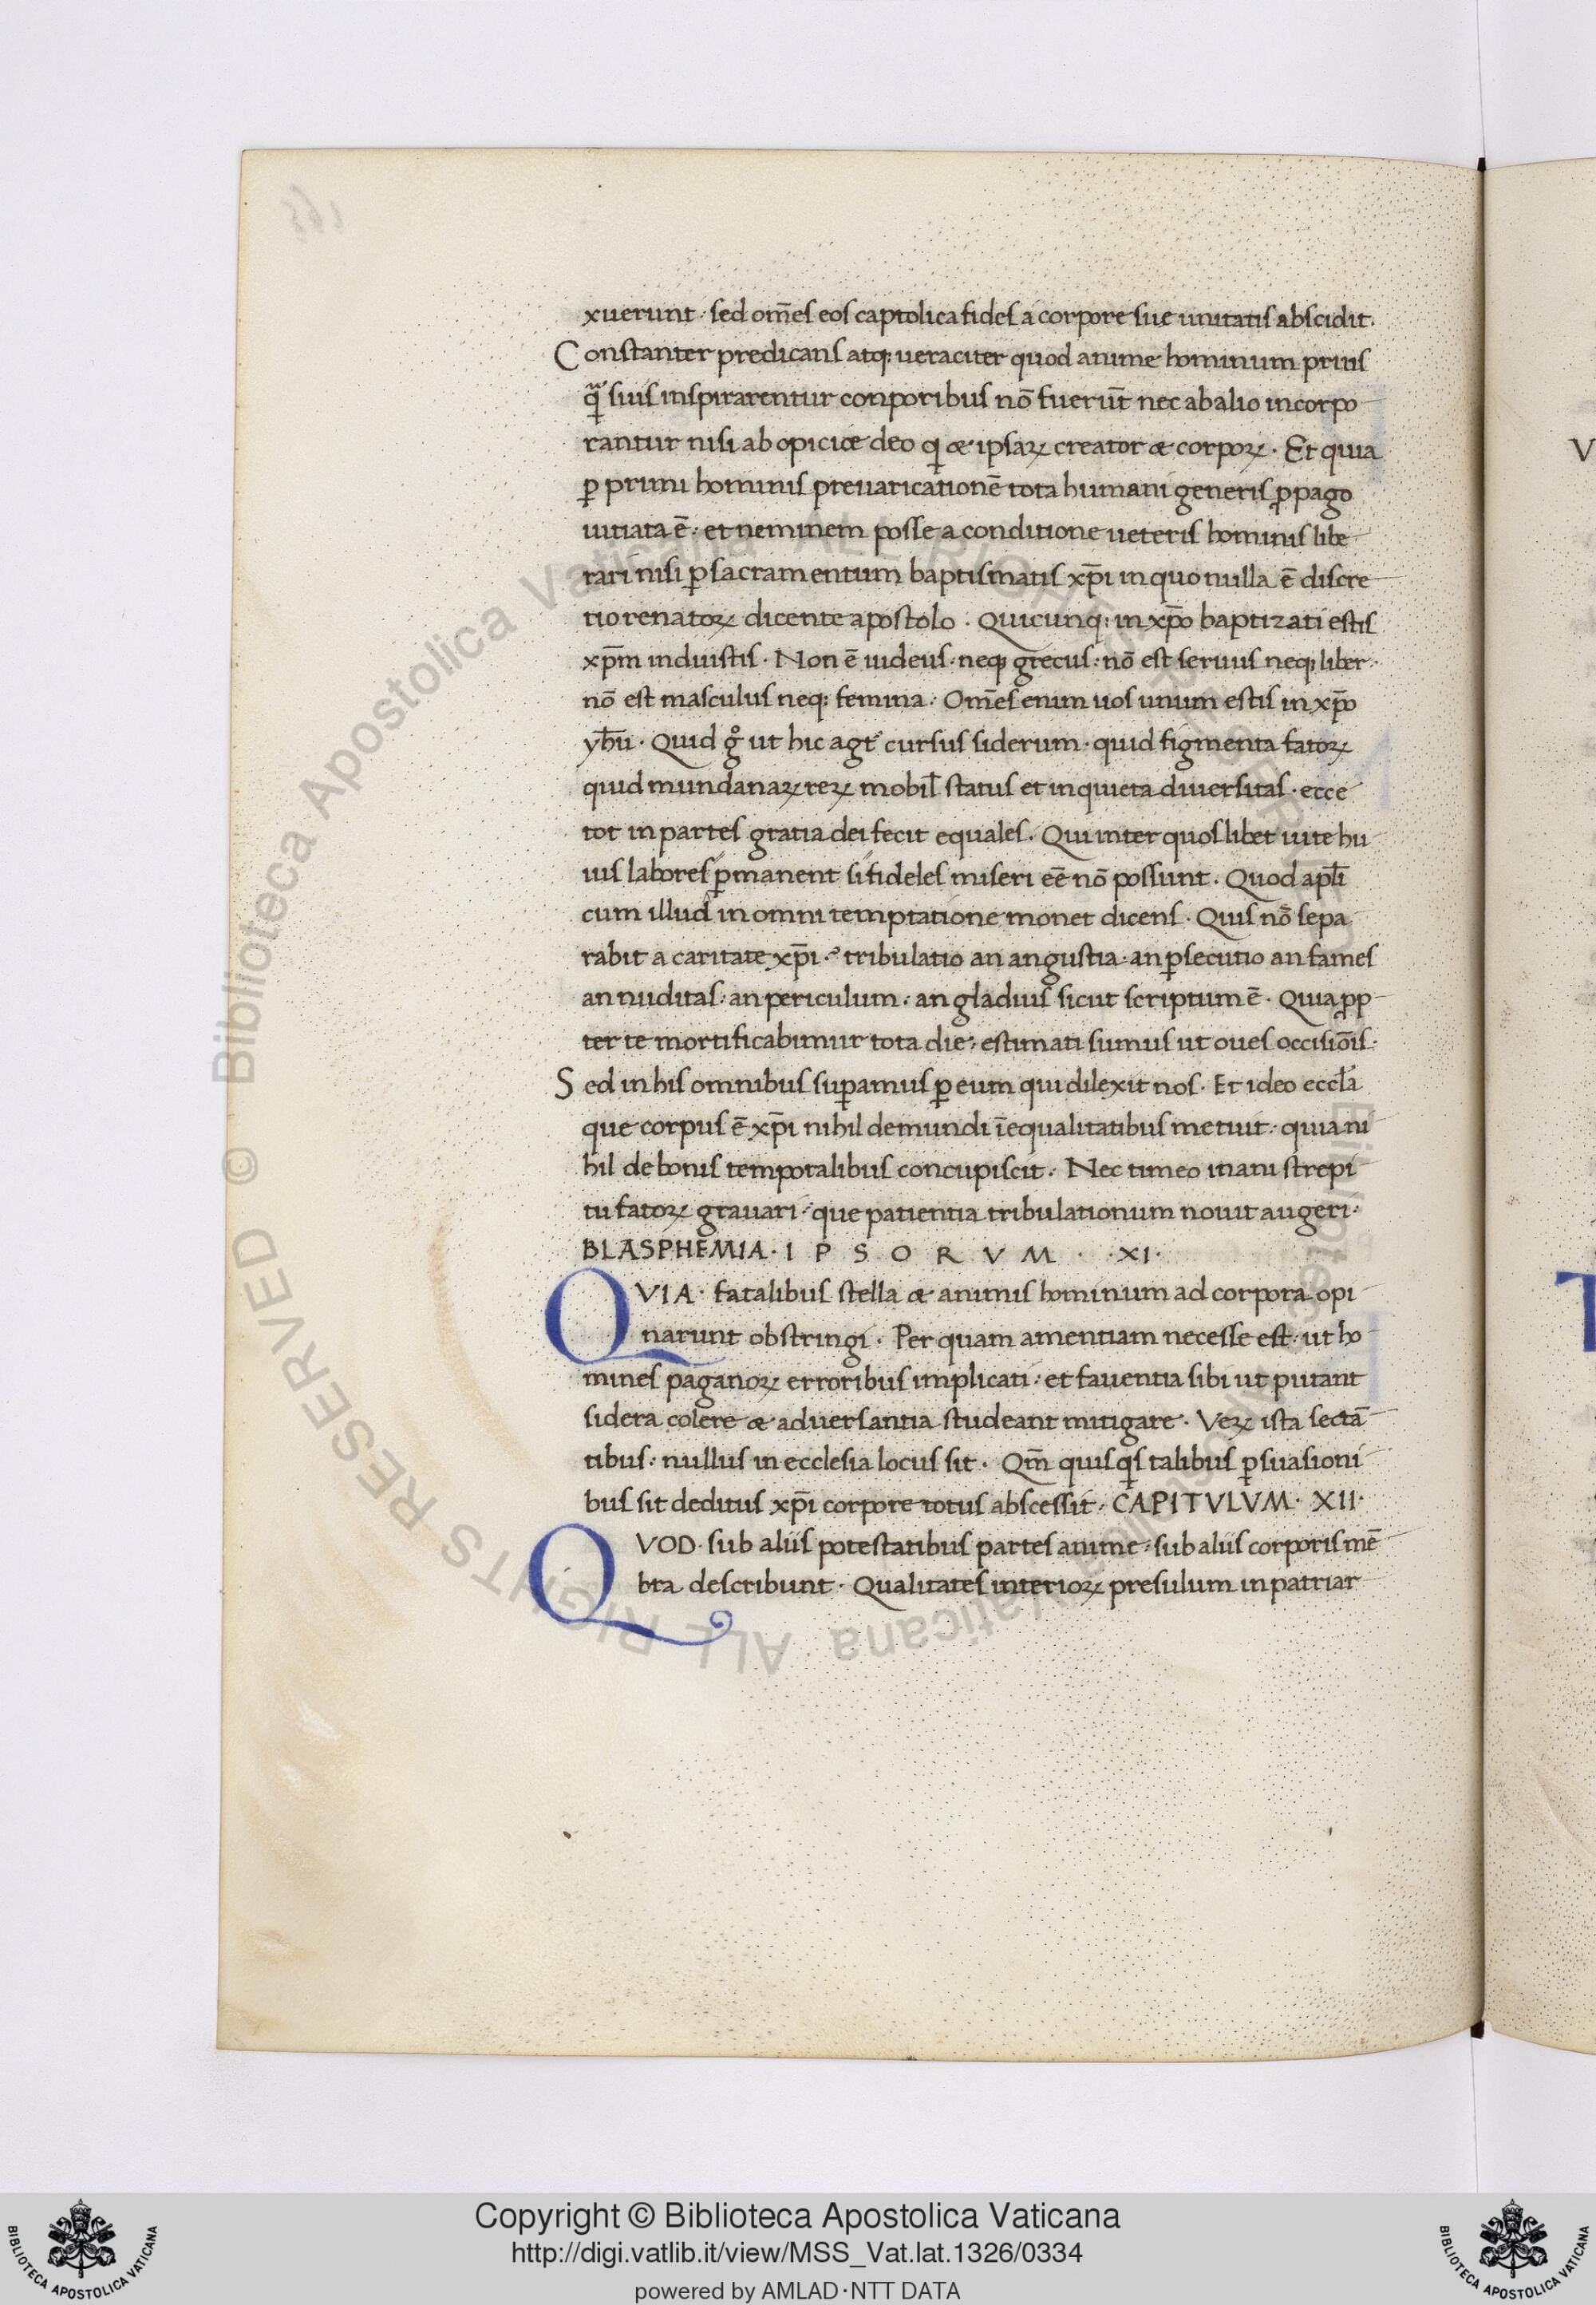 xuerunt · sed om̄es eos captolica fides a corpore sue unitatis abscidit.
Constanter predicans atq; ueraciter quod anime hominum prius
qᷓ suis inspirarentur conporibus nō fuerūt nec ab alio incorpo
rantur nisi ab opicice deo qi æ ipsaꝝ creator æ corpoꝝ · Et quia
ꝑ primi hominis preuaricationē tota humani generis ꝓpago
uitiata ē : et neminem posse a conditione ueteris hominis libe
rari nisi ꝑ sacramentum baptismatis xp̄i in quo nulla ē discre
tio renatoꝝ dicente apostolo · Quicunq; in xp̄o baptizati estis
xp̄m induistis · Non ē iudeus · neq; grecus : nō est seruus neq; liber ·
nō est masculus neq; femina : Om̄es enim uos unum estis in xp̄o
yh̄u · Quid gͦ ut hic agt᾽ cursus siderum · quid figmenta fatoꝝ
quid mundanaꝝ reꝝ mobil̄ status et inquieta diuersitas · ecce
tot inpartes gratia dei fecit equales. Qui inter quoslibet uite hu
ius labores ꝑmanent si fideles miseri eē nō possunt. Quod apl̄i
cum illud in omni temptatione monet dicens · Quis nō sepa
rabit a caritate xp̄i · ? tribulatio an angustia : an ꝑsecutio an fames
an nuditas : an periculum : an gladius sicut scriptum ē · Quia ꝓp
ter te mortificabimur tota die : estimati sumus ut oues occisiōis ·
Sed in his omnibus suꝑamus ꝑ eum qui dilexit nos · Et ideo eccl̄a
que corpus ē xp̄i nihil de mundi īequalitatibus metuit : quia ni
hil de bonis temporalibus concupiscit : Nec timeo inani strepi
tu fatoꝝ grauari : que patientia tribulationum nouit augeri ·
BLASPHEMIA · IPSORVM · XI ·
QVIA · fatalibus stella æ animis hominum ad corpora opi
narunt obstringi · Per quam amentiam necesse est : ut ho
mines paganoꝝ erroribus implicati : et fauentia sibi ut putant
sidera colere æ aduersantia studeant mitigare · Veꝝ ista sectā
tibus : nullus in ecclesia locus sit · Qm̄ quisqis talibus ꝑsuasioni
bus sit deditus xp̄i corpore totus abscessit · CAPITVLVM · XII ·
QVOD · sub aliis potestatibus partes anime : sub aliis corporis mē
bra describunt · Qualitates interioꝝ presulum in patriar
Copyright © Biblioteca Apostolica Vaticana
http://digi.vatlib.it/view/MSS_Vat.lat.1326/0334
powered by AMLAD·NTT DATA